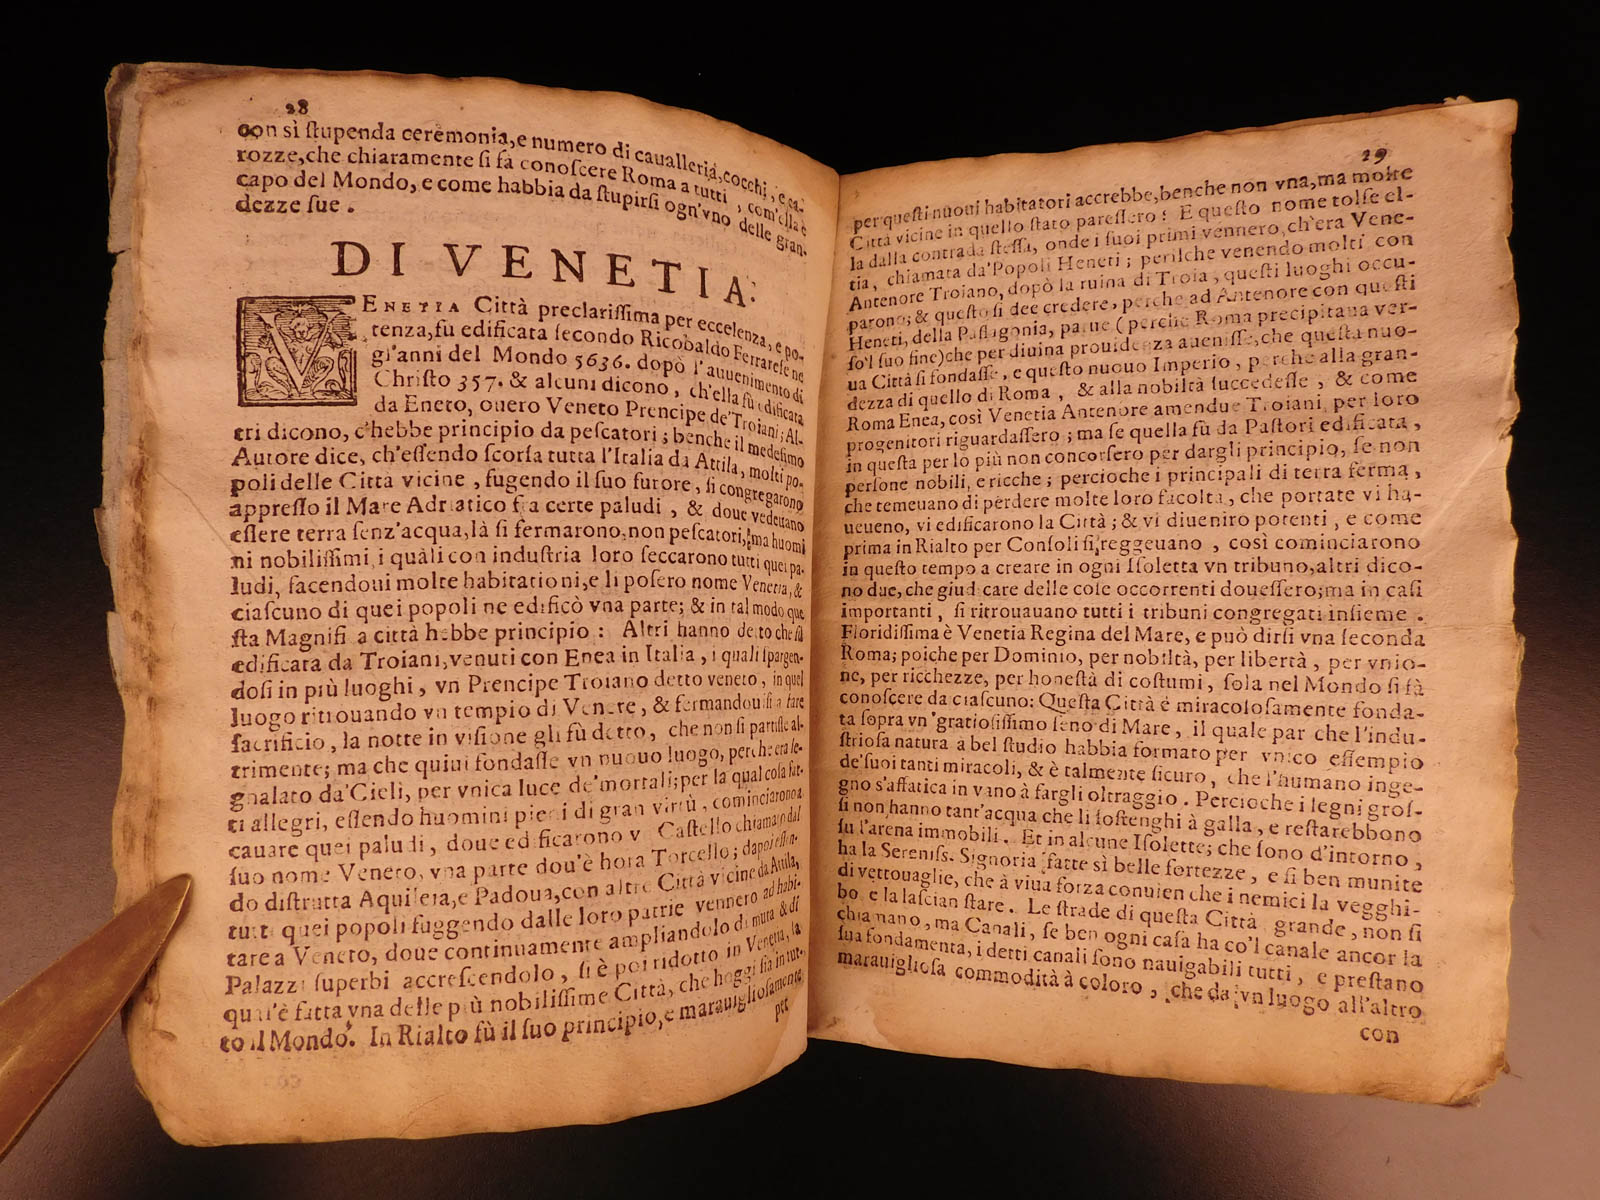 28
con sì ſtupenda ceremonia, e numero di caualleria, cocchi, e ca-
rozze, che chiaramente ſi fà conoſcere Roma a tutti, com'ella è
capo del Mondo, e come habbia da ſtupirſi ogn'vno delle gran-
dezze ſue.
DI VENETIA.
VENETIA Città preclariſſima per eccelenza, e po-
tenza, fù edificata ſecondo Ricobaldo Ferrareſe ne
gl'anni del Mondo 5636. dopò l'auuenimento di
Chriſto 357. & alcuni dicono, ch'ella fù edificata
da Eneto, ouero Veneto Prencipe de'Troiani; Al-
tri dicono, c'hebbe principio da peſcatori; benche il medeſimo
Autore dice, ch'eſſendo ſcorſa tutta l'Italia da Attila, molti po-
poli delle Città vicine, fugendo il ſuo furore, ſi congregarono
appreſſo il Mare Adriatico fra certe paludi, & doue vedeuano
eſſere terra ſenz'acqua, là ſi fermarono, non peſcatori, ma huomi
ni nobiliſſimi, i quàli con induſtria loro ſeccarono tutti quei pa-
ludi, facendoui molte habitationi, e li poſero nome Venetia, &
ciaſcuno di quei popoli ne edificò vna parte; & in tal modo que
ſta Magnifi a città hebbe principio: Altri hanno detto che fù
edificata da Troiani, venuti con Enea in Italia, i quali ſpargen-
doſi in più luoghi, vn Prencipe Troiano detto veneto, in quel
luogo ritrouando vn tempio di Venere, & fermandouiſi a fare
ſacrificio, la notte in viſione gli fù detto, che non ſi partiſſe al-
trimente; ma che quiui fondaſſe vn nuouo luogo, perche era ſe-
gnalato da'Cieli, per vnica luce de'mortali; per la qual coſa fat-
ti allegri, eſſendo huomini pieni di gran virtù, cominciarono a
cauare quei paludi, doue edificarono v Caſtello chiamato dal
ſuo nome Veneto, vna parte dou'è hora Torcello; dapoi eſſen-
do diſtrutta Aquileia, e Padoua, con altre Città vicine da Attila,
tutti quei popoli fuggendo dalle loro patrie vennero ad habi-
tare a Veneto, doue continuamente ampliandolo di mura & di
Palazzi ſuperbi accreſcendolo, ſi è poi ridotto in Venetia, la
qual'è fatta vna delle più nobiliſſime Città, che hoggi ſia in tut-
to il Mondo. In Rialto fù il ſuo principio, e marauiglioſamente
per
29
per queſti nuoui habitatori accrebbe, benche non vna, ma molte
Città vicine in quello ſtato pareſſero: E queſto nome tolſe el-
la dalla contrada ſteſſa, onde i ſuoi primi vennero, ch'era Vene-
tia, chiamata da'Popoli Heneti; perilche venendo molti con
Antenore Troiano, dopò la ruina di Troia, queſti luoghi occu-
parono; & queſto ſi dee credere, perche ad Antenore con queſti
Heneti, della Paflagonia, parue (perche Roma precipitaua ver-
ſo'l ſuo fine) che per diuina prouidenza aueniſſe, che queſta nuo-
ua Città ſi fondaſſe, e queſto nuouo Imperio, perche alla gran-
dezza di quello di Roma, & alla nobiltà ſuccedeſſe, & come
Roma Enea, così Venetia Antenore amendue Troiani per loro
progenitori riguardaſſero; ma ſe quella fù da Paſtori edificata,
in queſta per lo più non concorſero per dargli principio, ſe non
perſone nobili, e ricche; percioche i principali di terra ferma,
che temeuano di perdere molte loro facoltà, che portate vi ha-
ueueno, vi edificarono la Città; & vi diueniro potenti, e come
prima in Rialto per Conſoli ſi reggeuano, così cominciarono
in queſto tempo a creare in ogni Iſoletta vn tribuno, altri dico-
no due, che giudicare delle coſe occorrenti doueſſero; ma in caſi
importanti, ſi ritrouauano tutti i tribuni congregati inſieme.
Floridiſſima è Venetia Regina del Mare, e può dirſi vna ſeconda
Roma; poiche per Dominio, per nobiltà, per libertà, per vnio-
ne, per ricchezze, per honeſtà di coſtumi, ſola nel Mondo ſi fà
conoſcere da ciaſcuno: Queſta Città è miracoloſamente fonda-
ta ſopra vn'gratioſiſſimo ſeno di Mare, il quale par che l'indu-
ſtrioſa natura à bel ſtudio habbia formato per vnico eſſempio
de'ſuoi tanti miracoli, & è talmente ſicuro, che l'humano inge-
gno s'affatica in vano à fargli oltraggio. Percioche i legni groſ-
ſi non hanno tant'acqua che li ſoſtenghi à galla, e reſtarebbono
ſu l'arena immobili. Et in alcune Iſolette; che ſono d'intorno,
ha la Sereniſs. Signoria fatte sì belle fortezze, e ſi ben munite
di vettouaglie, che à viua forza conuien che i nemici la vegghi-
bo e la laſcian ſtare. Le ſtrade di queſta Città grande, non ſi
chiamano, ma Canali, ſe ben ogni caſa ha co'l canale ancor la
ſua fondamenta, i detti canali ſono nauigabili tutti, e preſtano
marauiglioſa commodità à coloro, che da vn luogo all'altro
con